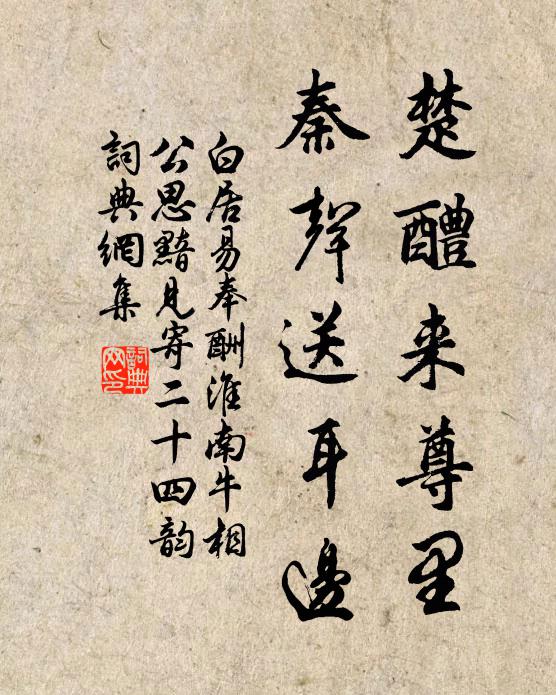 楚醴来尊里
秦聲送耳邊
白居易奉酬淮南牛相
公思黯見寄二十四韵
詞典網集
詞典
网印